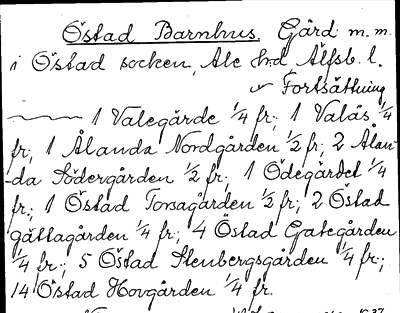 Östad Barnhus. Gård m. m.
i Östad socken, Ale hrd Älfsb. l.
Fortsättning
1 Valegårde 1/4 fr; 1 Valås 1/4
fr; 1 Ålanda Nordgården 1/2 fr; 2 Ålan-
da Södergården 1/2 fr; 1 Ödegärdet 1/4
fr; 1 Östad Torsagården 1/2 fr; 2 Östad
gåttagården 1/4 fr; 4 Östad Gategården
1/4 fr; 5 Östad Stenbergsgården 1/4 fr;
14 Östad Hovgården 1/4 fr.